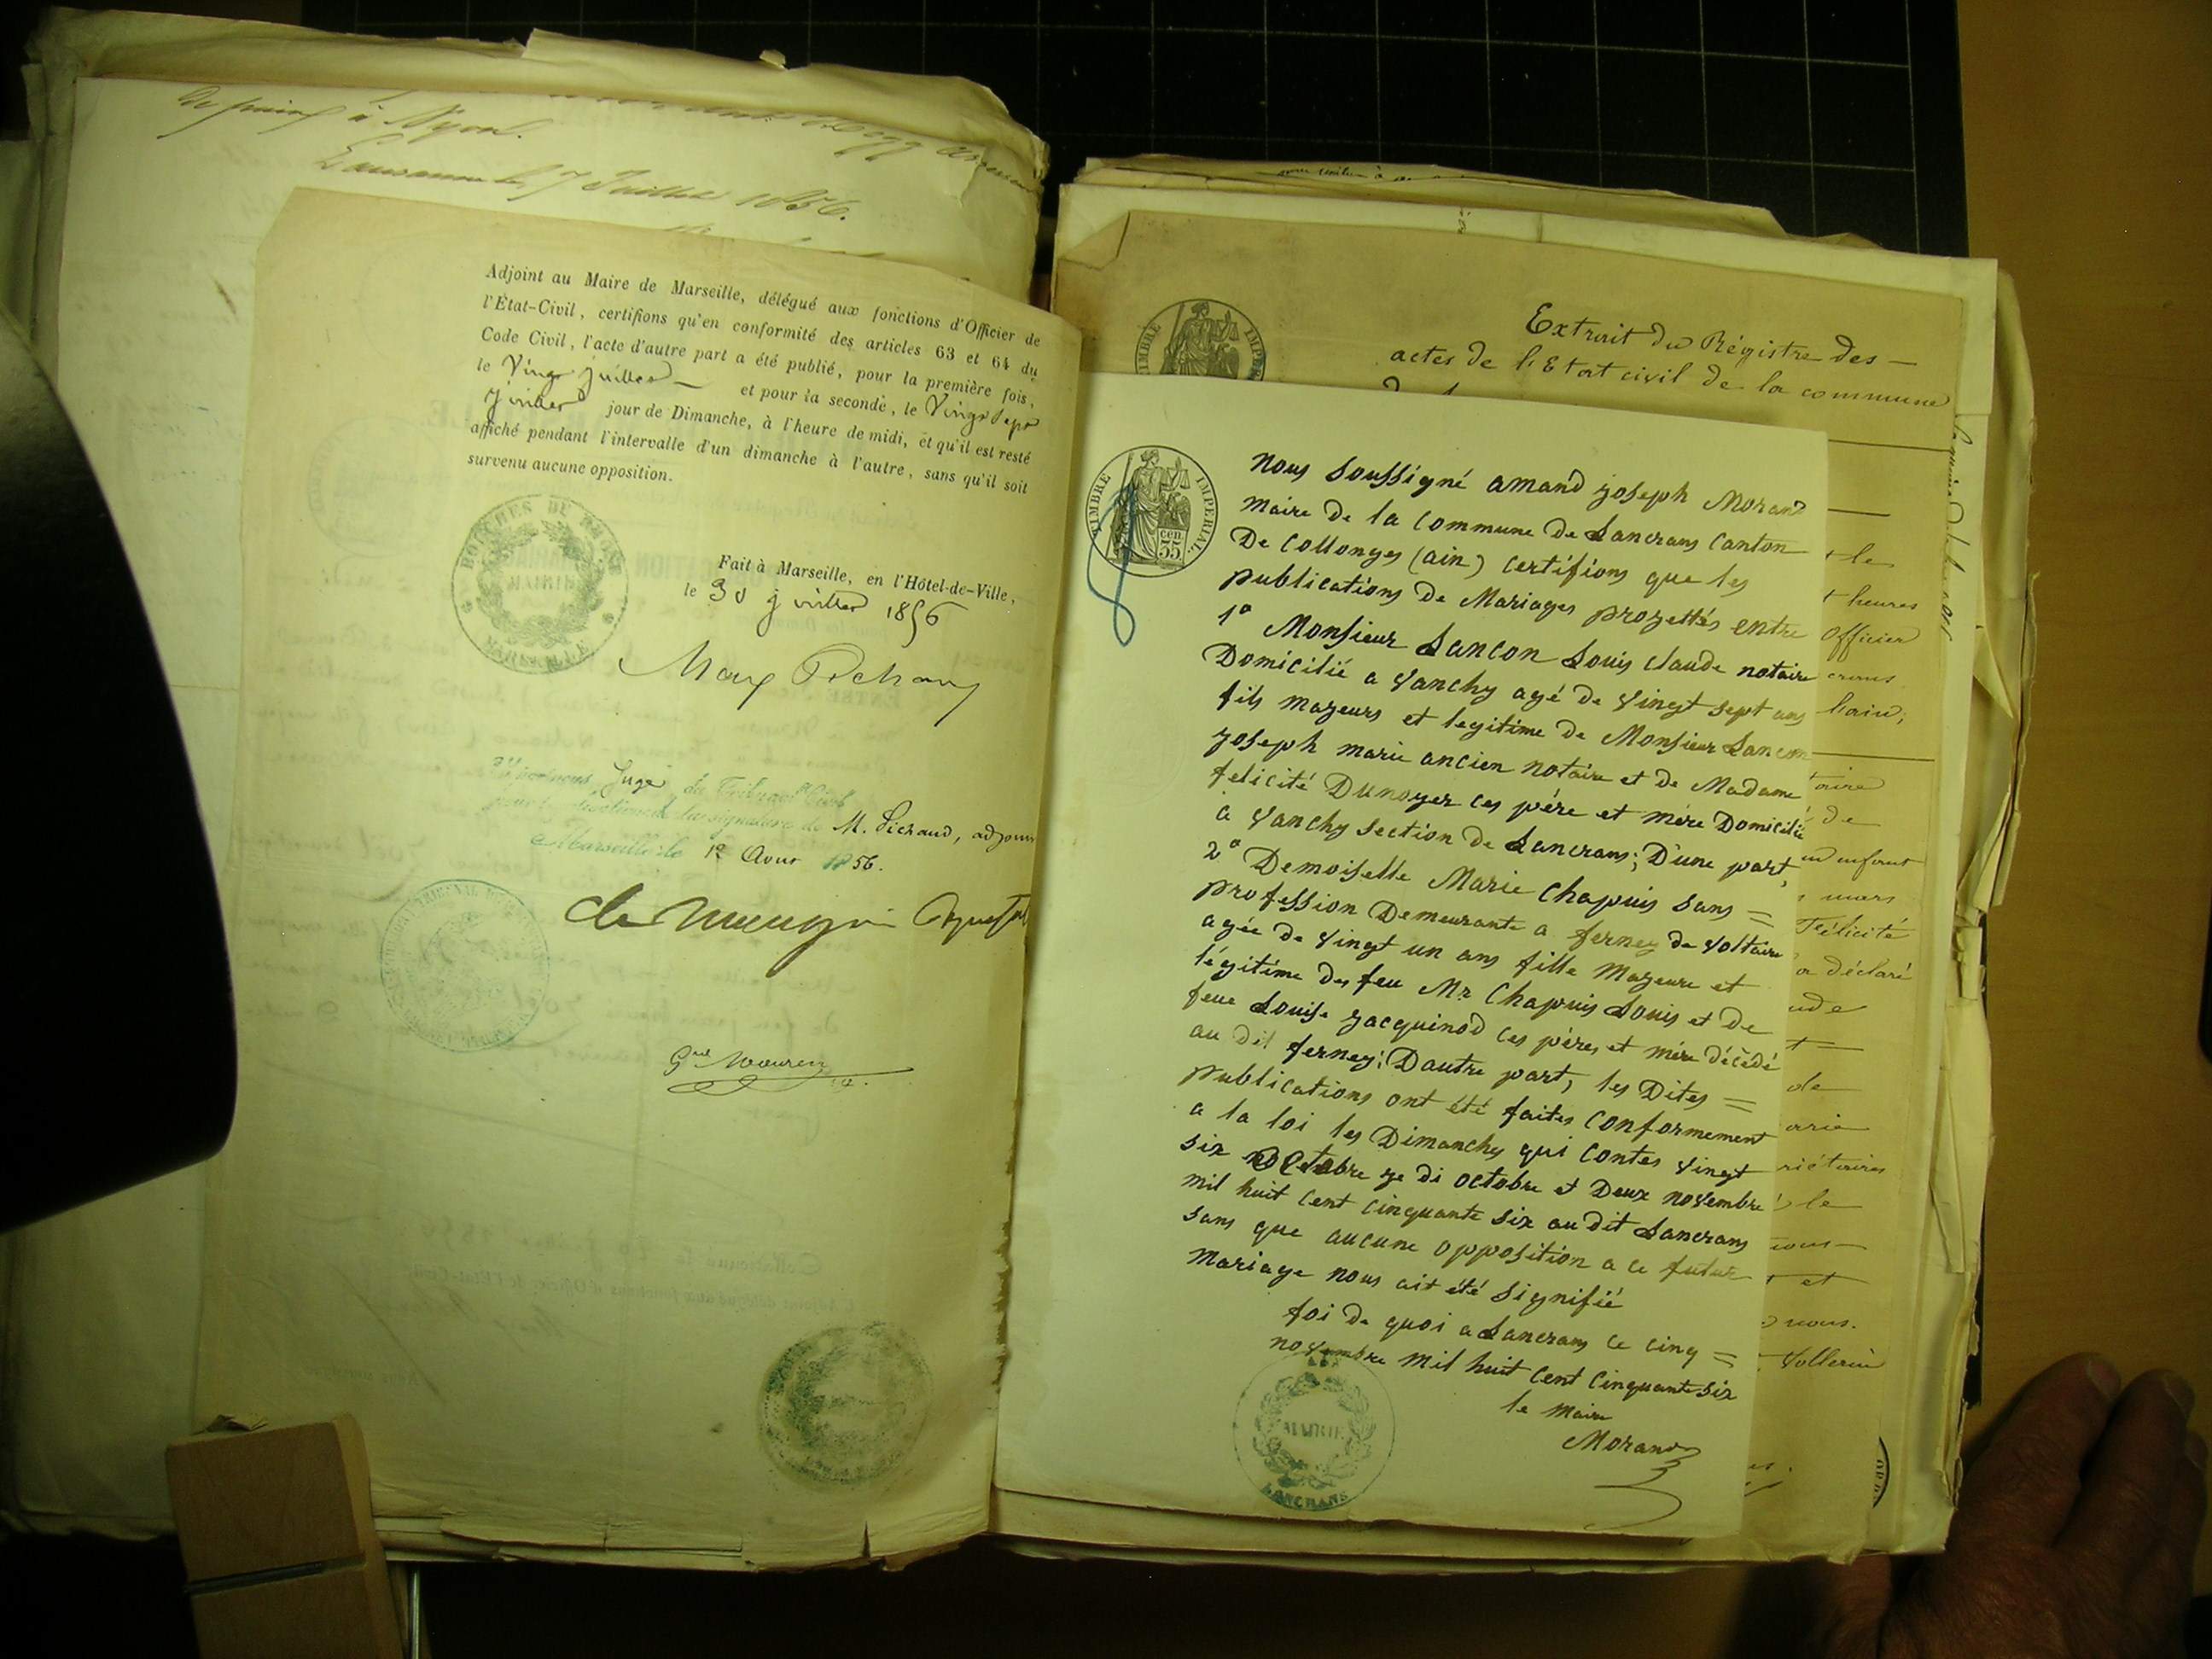 de prince à Nyon.
Lausanne le 7 Juillet 1856.
Adjoint au Maire de Marseille, délégué aux fonctions d'Officier de
l'État-Civil, certifions qu'en conformité des articles 63 et 64 du
Code Civil, l'acte d'autre part a été publié, pour la première fois,
le Vingt juillet et pour la seconde, le Vingt Sept
juillet jour de Dimanche, à l'heure de midi, et qu'il est resté
affiché pendant l'intervalle d'un dimanche à l'autre, sans qu'il soit
survenu aucune opposition.
BOUCHES DU RHÔNE
MAIRIE
MARSEILLE
Fait à Marseille, en l'Hôtel-de-Ville,
le 30 juillet 1856
Juge du Tribunal Civil
la signature de M. Pichaud, adjoint
Marseille le 1er Aout 1856.
TIMBRE IMPERIAL
Extrait du Régistre des
actes de l'Etat civil de la commune
TIMBRE IMPERIAL
55 cen
nous soussigné amand joseph Morand
Maire de la Commune de Lancrans Canton
De Collonges (ain) certifions que les
publications de Mariages projettés entre
1° Monsieur Lancon Louis Claude notaire
Domicilié a Vanchy agé de Vingt sept ans
fils majeurs et legitime de Monsieur Lancon
joseph marie ancien notaire et de Madame
felicité Dunoyer ces pére et mére Domicilié
a Vanchy section de Lancrans; D'une part,
2° Demoiselle Marie Chapuis sans =
profession Demeurante a ferney de Voltaire
agée de Vingt un ans fille Majeure et
légitime des feu Mr Chapuis Louis et de
feue Louise jacquinod ces péres et mére décédé
au dit ferney; D'autre part, les Dites =
publications ont été faites Conformement
a la loi les Dimanches qui Contes Vingt
six Octobre je di octobre et Deux novembre
mil huit Cent Cinquante six au dit Lancrans
sans que aucune opposition a ce futur
mariage nous ait été signifié
foi de quoi a Lancrans ce cinq =
novembre mil huit Cent Cinquante six
le maire
Morand
MAIRIE
LANCRANS
le
heures
Officier
de
enfant
mars
Félicité
a déclaré
de
le
et
nous.